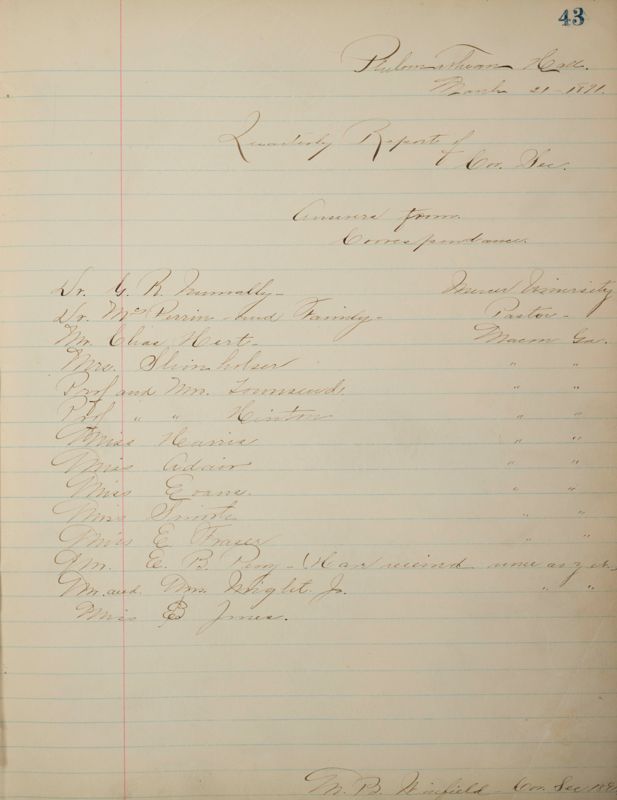 43
Philomathean Hall.
March 21 - 1891.
Quarterly Report of
Cor. Sec.
Answers from
Correspondence.
Dr. G. R. Nunnally - Mercer University
Dr. Perrin and Family - Pastor -
Mr. Chas Hart - Macon Ga.
Mrs. Shinholser " "
Prof and Mrs. Townsend. " "
Prof " " Hinton " "
Miss Harris " "
Miss Adair " "
Miss Evans. " "
Miss Smith " "
Miss E Fraser " "
E. B. - none as yet
Mr. and Mrs. Wright Jr. " "
Miss E Jones.
M. B. Winfield Cor. Sec